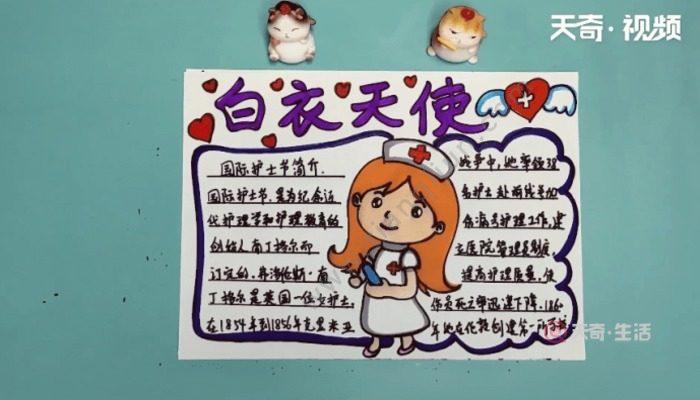 天奇·视频
白衣天使
国际护士节简介.
国际护士节,是为纪念近
代护理学和护理教育的
创始人南丁格尔而
订定的.弗洛伦斯·南
丁格尔是英国一位女护士,
在1854年到1856年克里米亚
战争中,她率领38
名护士赴前线参加
伤病员护理工作,建
立医院管理制度
提高护理质量,使
伤员死亡率迅速下降.186
年她在伦敦创建第一所
天奇·生活